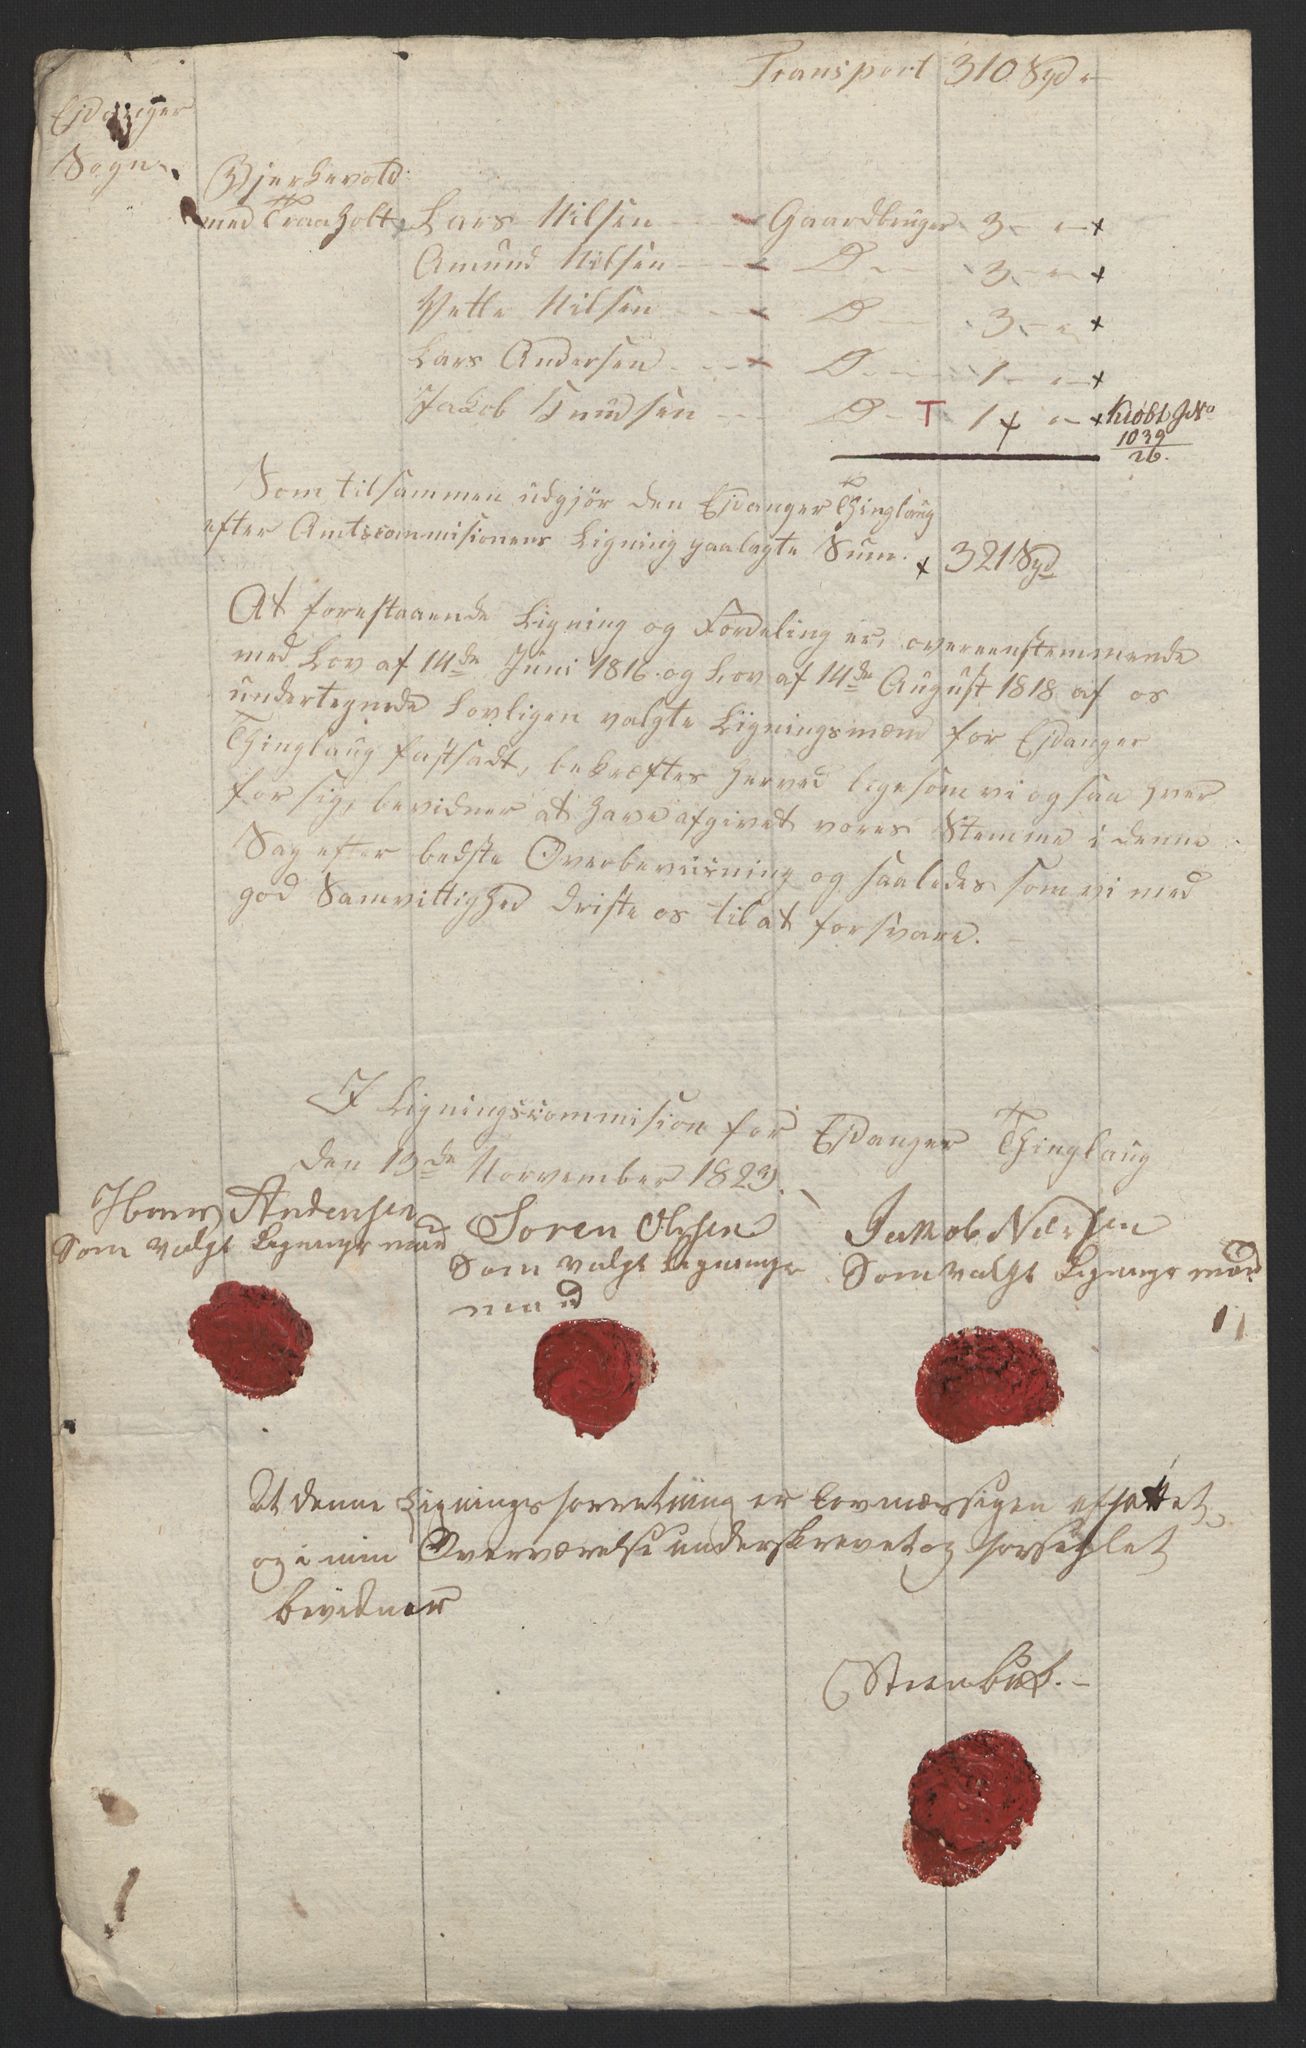 Transport 310 Spd
Ejdanger
Sogn
Bjerkevold
med Traaholt Lars Nilsen Gaardbruger 3
Amund Nilsen D 3
Vetle Nilsen D 3
Lars Andersen D 1
Jakob Knudsen D T 1 Kiøbt JNo
1039
26.
Som tilsammen udgjör den Ejdanger Thinglaug
efter Amtscommisionens Ligning paalagte Sum. 321 Spd
At forestaaende Ligning og Fordeling er, overeenstemmende
med Lov af 14de Juni 1816 og Lov af 14de August 1818 af os
undertegnede Lovligen valgte Ligningsmænd for Ejdanger
Thinglaug fastsadt, bekræftes herved ligesom vi og saa hver
for sig, bevidner at have afgivet vores Stemme i denne
Sag efter bedste Overbeviisning og saaledes som vi med
god Samvittighed driste os til at forsvare.
I Ligningscommision for Ejdanger Thinglaug
den 13de November 1823.
Hans Andersen Soren Olsen Jakob Nilsen
Som valgt Lignings mand Som valgt Lignings Som valgt Lignings mand
mand
At denne Ligningsforretning er lovmæssigen afsattet
og i min Overværelse underskrevet og forseglet
bevidner
Steenbuk.